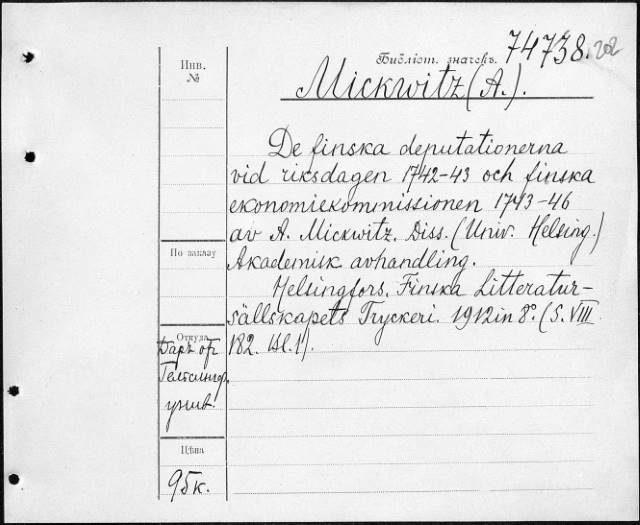 Инв.
№
Библіот. значекъ.
74738.202
Mickwitz (A.).
De finska deputationerna
vid riksdagen 1742-43 och finska
ekonomiekommissionen 1743-46
av A. Mickwitz. Diss. (Univ. Helsing.)
Akademisk avhandling.
Helsingfors. Finska Litteratur-
sällskapets Tryckeri. 1912 in 8°. (S. VIII
182. Bl. 1).
По заказу
Откуда
Даръ от
Гельсингф.
унив.
Цѣна
95к.